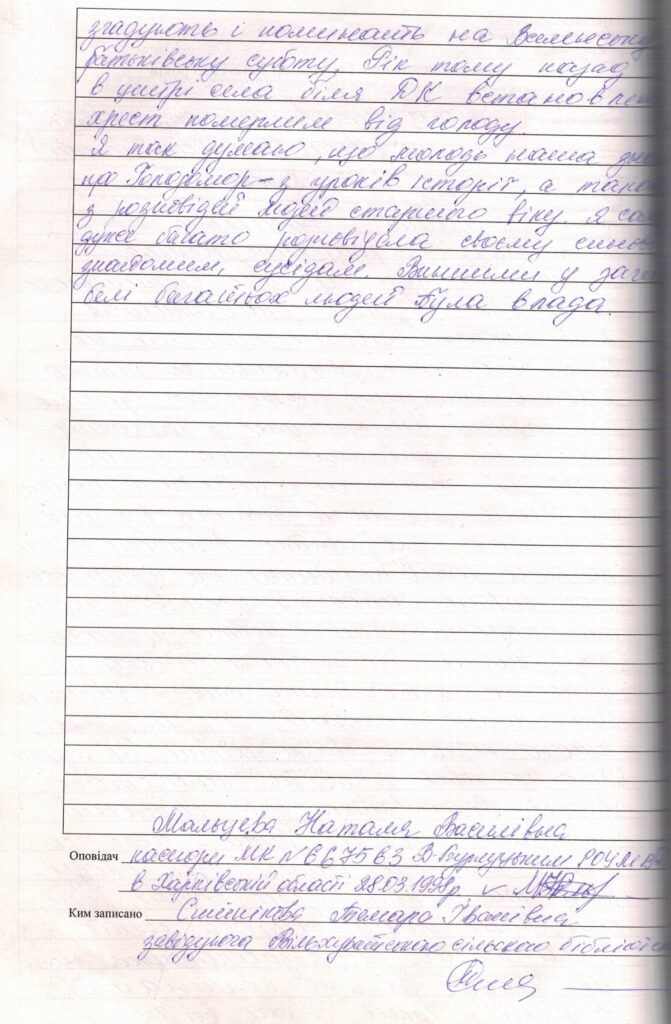 згадують і поминають на Вселенську
батьківську суботу. Рік тому назад
в центрі села біля ДК встановлен
хрест померлим від голоду.
Я так думаю, що молодь наша
про Голодомор – з уроків історії, а
з розповідей людей старшого віку. Я
дуже багато розповідала своєму
знайомим, сусідам. Винними у заги
белі багатьох людей була влада.
Мальцева Наталя Василівна
Оповідач паспорт МК №667563 В-Бурлуцьким
в Харківській області 28.03.1998р.
Ким записано Тамара Іванівна
завідуюча сільською